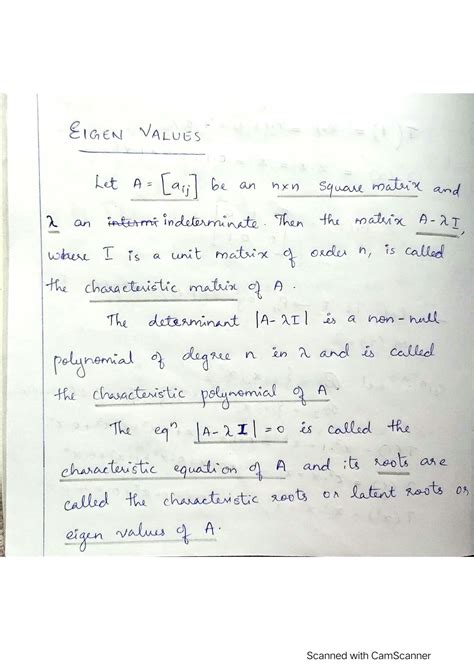 EIGEN VALUES
Let A = [aij] be an n×n square matrix and
λ an intermi indeterminate. Then the matrix A-λI,
where I is a unit matrix of order n, is called
the characteristic matrix of A.
The determinant |A-λI| is a non-null
polynomial of degree n in λ and is called
the characteristic polynomial of A.
The eqⁿ |A-λI|=0 is called the
characteristic equation of A and its roots are
called the characteristic roots or latent roots or
eigen values of A.
Scanned with CamScanner